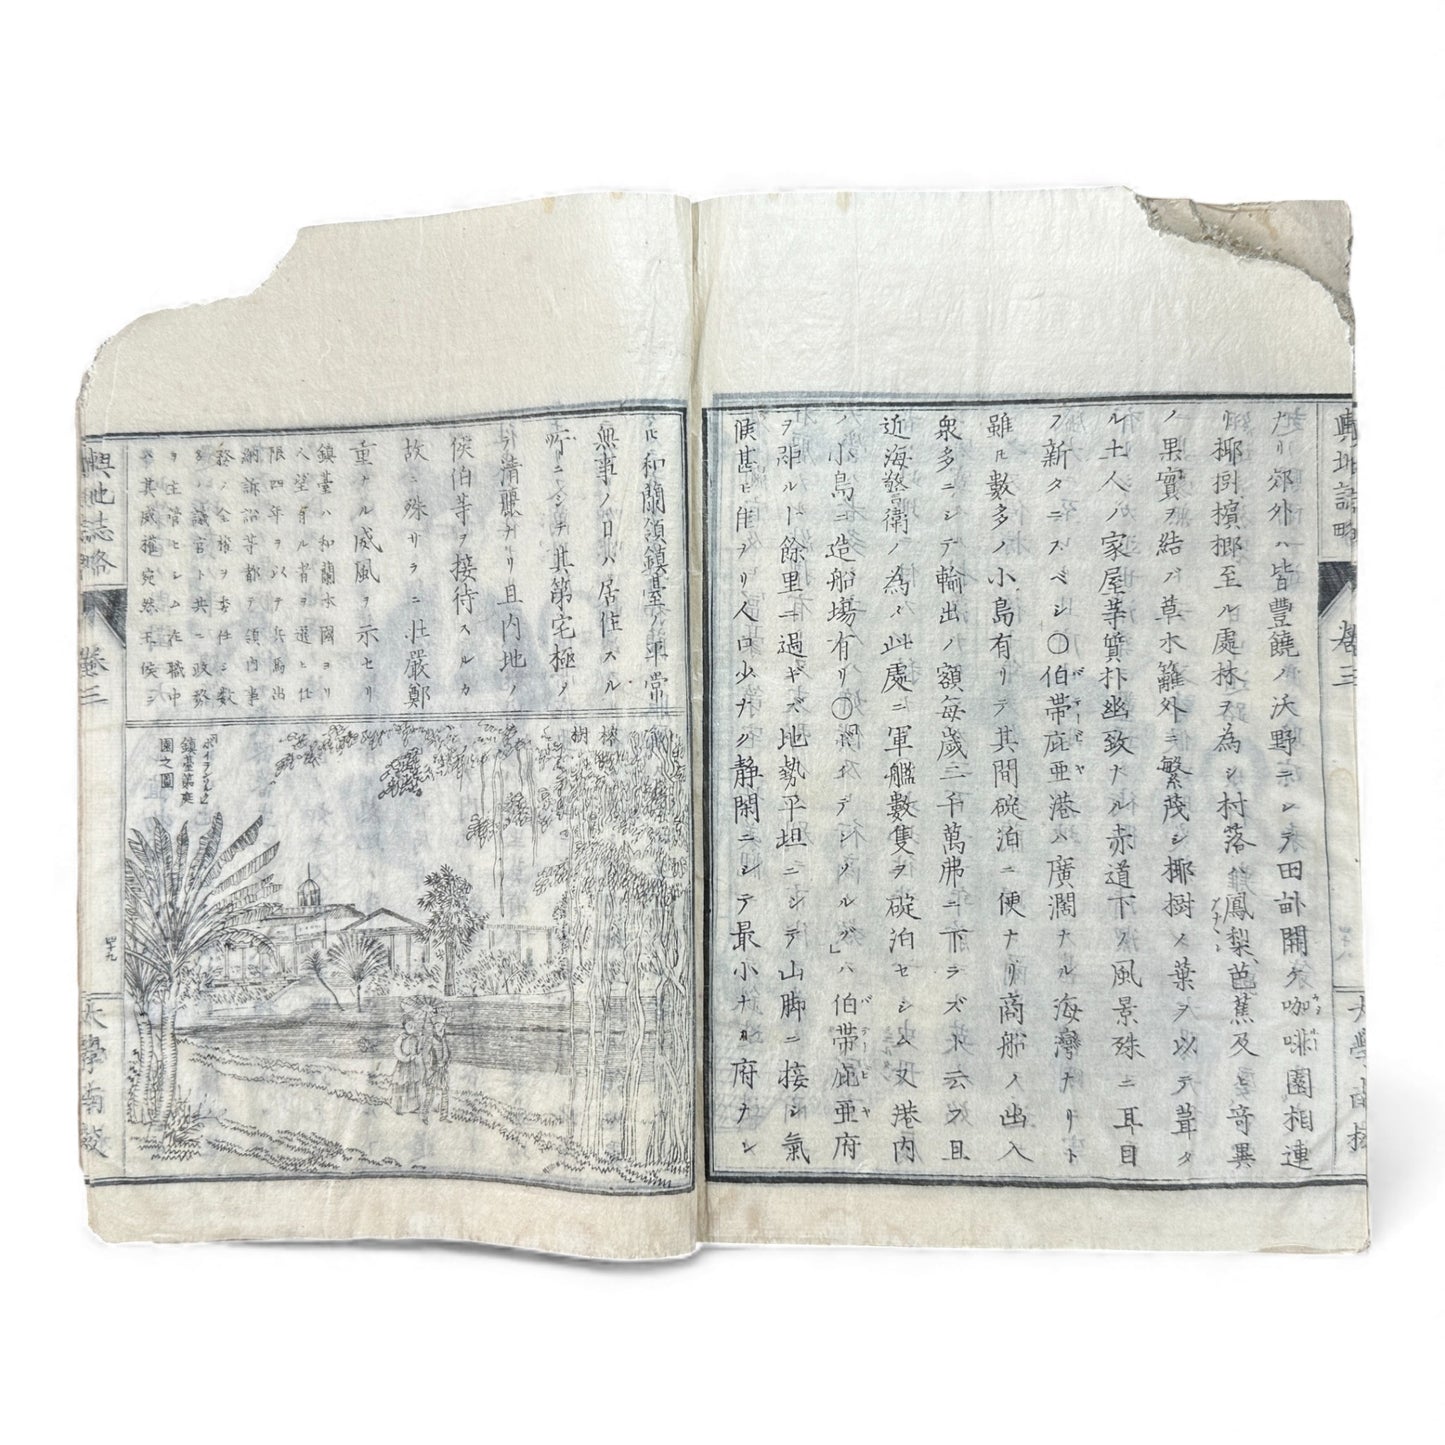 輿地誌略
巻三
大學南校
ナリ郊外ハ皆豐饒ノ沃野ニシテ田畝開ケ咖啡園相連
リ椰樹檳榔至ル處林ヲ為シ村落ハ鳳梨芭蕉及ヒ奇異
ノ果實ヲ結バ草木籬外ニ繁茂シ椰樹ノ葉ヲ以テ葺タ
ル土人ノ家屋等質朴幽致ナル赤道下ノ風景殊ニ耳目
ヲ新タニスベシ〇伯帶庇亜港ハ廣濶ナル海灣ナリト
雖ㇽ數多ノ小島有リテ其間碇泊ニ便ナリ商船ノ出入
衆多ニシテ輸出ノ額每歲三千萬弗ニ下ラズト云フ且
近海警衛ノ為メ此處ニ軍艦數隻ヲ碇泊セシム又港内
ノ小島ニ造船場有リ〇「ボイテンゾルグ」ハ伯帶庇亜府
ヲ距ルㇳ餘里ニ過ギズ地勢平坦ニシテ山脚ニ接シ氣
候甚ヒ佳ナリ人口少ナク静閑ニシテ最小ナル府ナレ
ㇳ和蘭領鎮臺ノ平常
無事ノ日ハ居住スル
所ニシテ其第宅極メ
テ清麗ナリ且内地ノ
侯伯等ヲ接待スルカ
故ニ殊サラニ壯嚴鄭
重ナル威風ヲ示セリ
鎮臺ハ和蘭本國ヨリ
人望有ル者ヲ選ヒ仕
限四年ヲ以テ兵馬出
納訴訟等都テ領内事
務ノ全權ヲ委任シ數
多ノ議官ト共ニ政務
ヲ主管セシム在職中
ハ其威權宛然王侯ニ
榕樹
ボイテンゾルグ
鎮臺第庭
園之圖
輿地誌略
巻三
四十九
大學南校